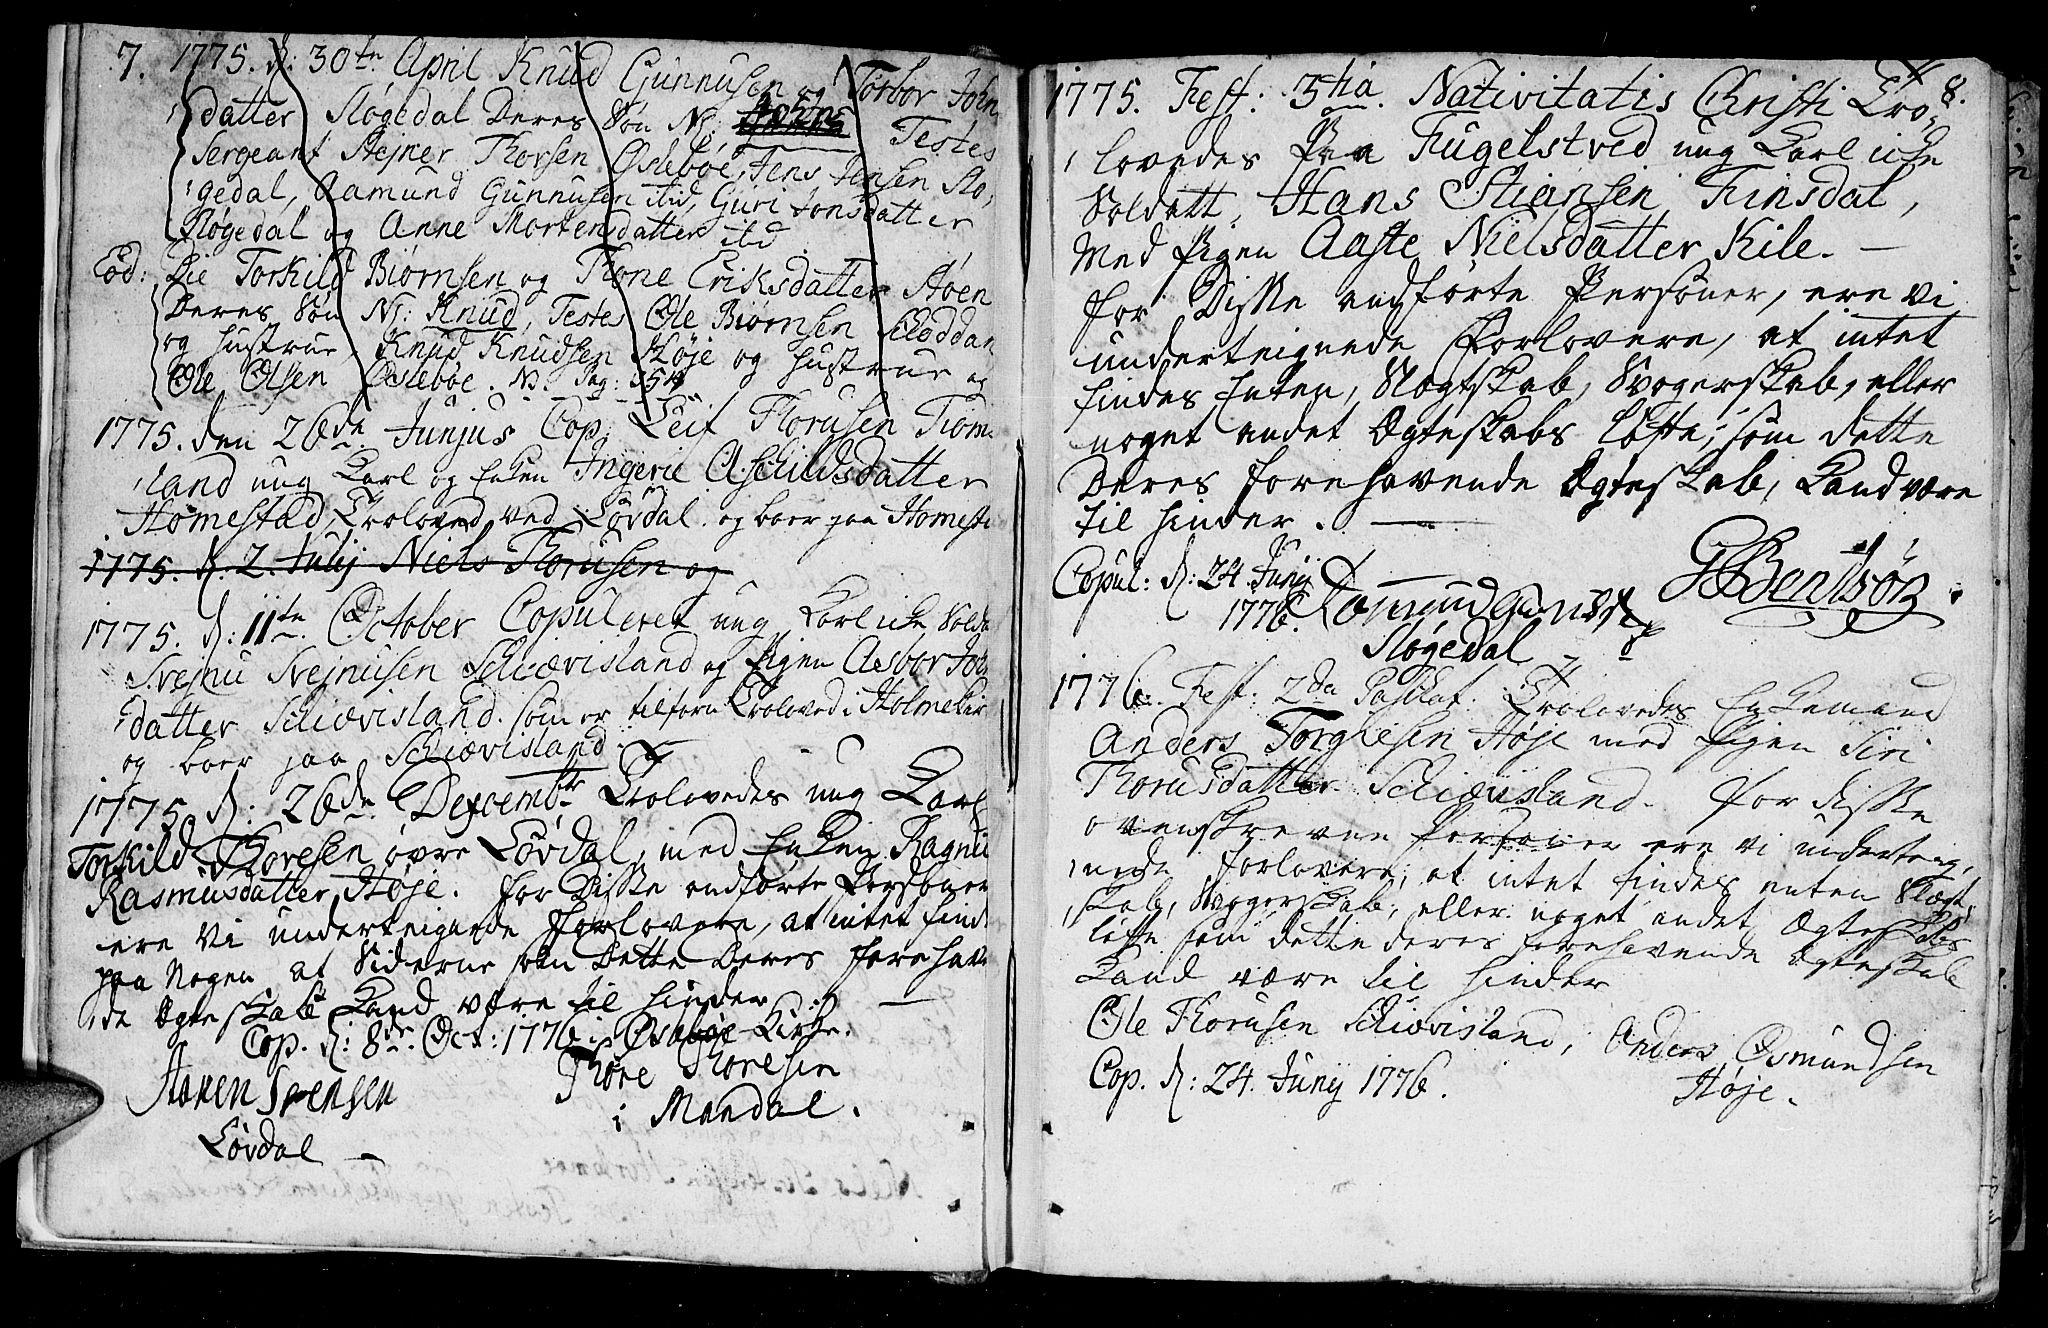 7. 1775. d: 30te April Knud Gunnusen og Torbor John
datter Sløgedal Deres Søn N:
Testes
Sergeant Stejner Thorsen Øslebøe, Jens Jensen Slø,
gedal, Aamund Gunnusen ibid, Guri Jonsdatter
Sløgedal og Anne Mortensdatter ibid
Eod: Die Torkild Biørnsen og Thone Eriksdatter Støen
Deres Søn N: Knud, Testes Ole Biørnsen
og Hustrue, Knud Knudsen Høje og Hustrue og
Ole Olsen Øslebøe. N. Pag:
1775. den 26de Junjus Cop. Leif Thorusen Tiom
land ung Karl og Enken Ingerie Aschildsdatter
Homestad, Troloved ved Løvdal og boer paa Homest
1775. d. 2. Julij Niels Thorusen og
1775. d: 11te October Copuleret ung Karl icke Solda
Svejnu Svejnusen Schiævisland og Pigen Aasbor Joh
datter Schiævisland. som er tilforn Troloved i Holme
og boer paa Schiævisland.
1775. d: 26de Dexembr Trolovedes ung Karl
Torkild Thoresen øvre Løvdal, med Enken Ragni
Rasmusdatter Høje. for Disse anførte Persohner
ere vi underteignede Forlovere, at intet find
paa Nogen af Siderne som Dette Deres forehav
de Ægteskab Kand være til Hinder.
Cop. d: 8de Oct: 1776 i Øslebøe Kirke.
Aanen Sørensen Thore Thoresen
Løvdal i Mandal.
8.
1775. Fest: 3tia. Nativitatis Christi Tro,
lovedes paa Fugelstved ung Karl icke
Soldatt, Hans Stiansen Finsdal,
med Pigen Aaste Nielsdatter Kile.
for Disse anførte Personer, ere vi
underteignede Forlovere, at intet
findes Enten, Slægtskab, Svogerskab, eller
noget andet Ægteskabs løfte, som dette
Deres forehavende Ægteskab, Kand være
til Hinder.
Copul: d: 24. Junij
1776.
Sløgedal
1776. Fest: 2da Paschat. Trolovedes Enkemand
Anders Torgiesen Høje med Pigen Siri
Thorusdatter Schiævisland. for disse
ovenskrevne Personer ere vi underteig,
nede forlovere, at intet findes enten Slægt,
skab, Svogerskab, eller noget andet Ægteskabs
løfte som dette deres forehavende Ægteskab
Kand være til Hinder
Ole Thorusen Schiævisland, Anders Osmundsen
Høje.
Cop. d: 24. Junij 1776.